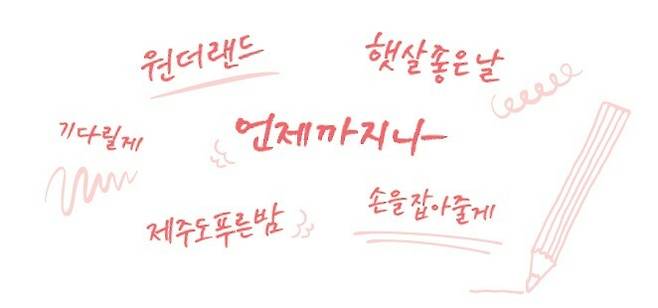 원더랜드
햇살좋은날
기다릴게
언제까지나
제주도푸른밤
손을잡아줄게